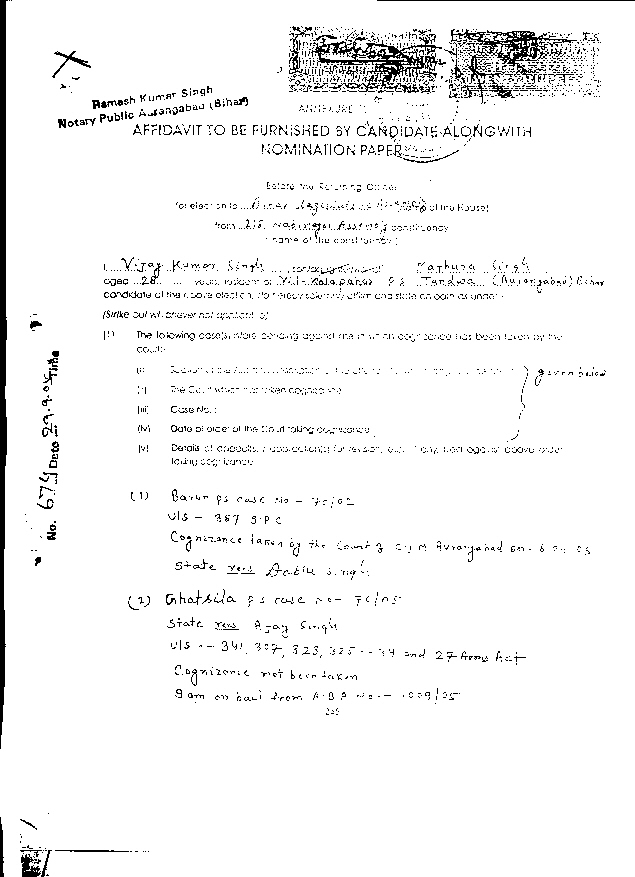 Ramesh Kumar Singh
Notary Public Aurangabad (Bihar)
ANNEXURE
AFFIDAVIT TO BE FURNISHED BY CANDIDATE ALONGWITH
NOMINATION PAPER
Before the Returning Officer
for election to of the House)
from constituency
(name of the constituency)
I Vijay Kumar Singh Mathura Singh
aged 28 years, resident of P.S Tandwa (Aurangabad) Bihar
candidate at the above election, do hereby solemnly affirm and state on oath as under:
(Strike out whichever not applicable)
(1) The following case(s) is/are pending against me in which cognizance has been taken by the
court:
(i) given below
(ii) The Court which has taken cognizance
(iii) Case No. :
(iv) Date of order of the Court taking cognizance
(v) Details of appeals, application(s) for revision, etc. if any, filed against above order
taking cognizance
No. 674 Date 29.9.05 Title
(1) Barun ps case No - 70/02
U/S - 387 I.P.C
Cognizance taken by the Court of C.J.M Aurangabad on
State vers Singh
(2) Ghatsila ps case no - 70/05
State vers Ajay Singh
U/S - 341, 307, 323, 325 - 34 and 27 Arms Act
Cognizance not been taken
I am on bail from A.B.A No -